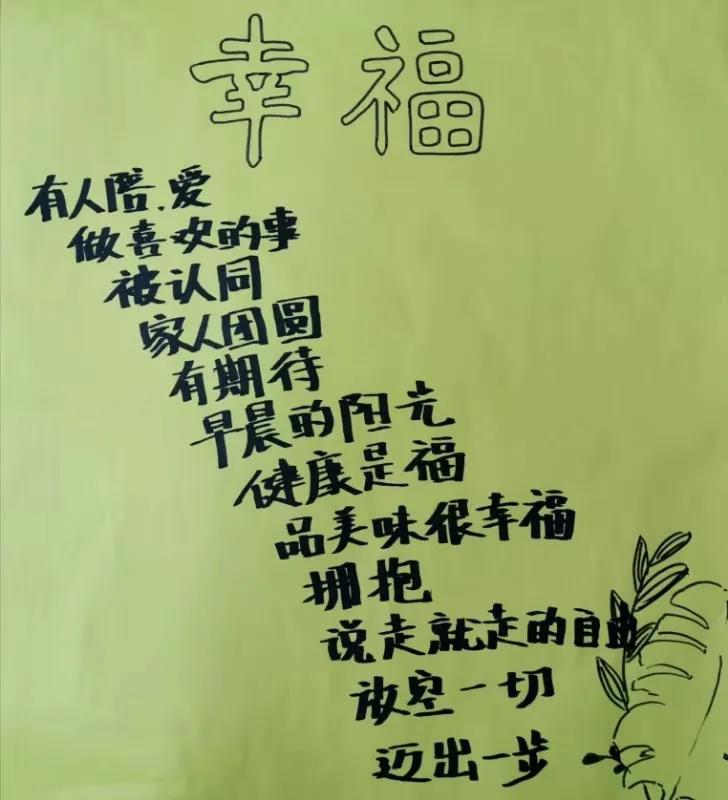 幸福
有人陪.爱
做喜欢的事
被认同
家人团圆
有期待
早晨的阳光
健康是福
品美味很幸福
拥抱
说走就走的自由
放空一切
迈出一步